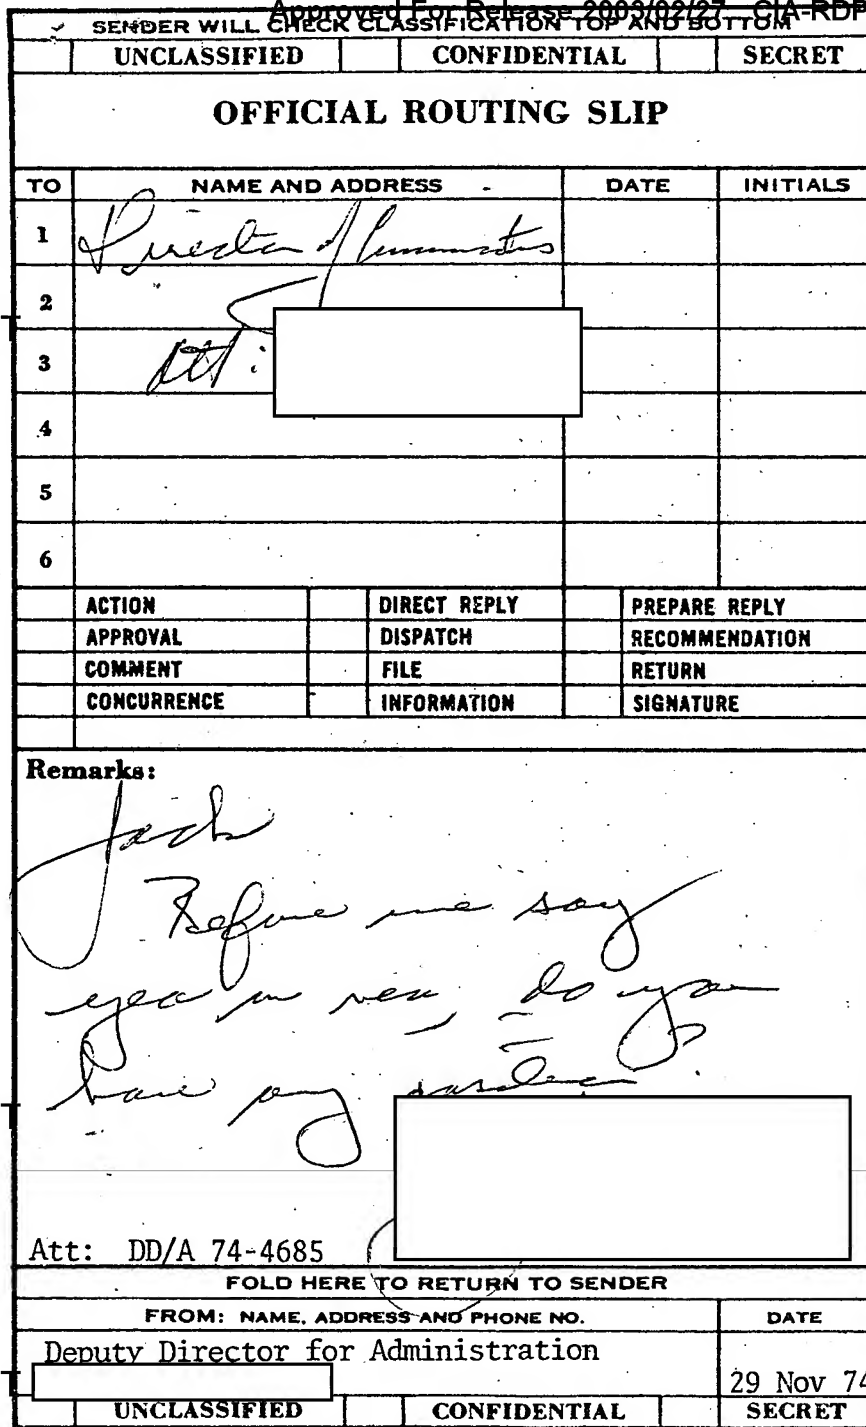 Approved For Release 2003/02/27 CIA-RDP
SENDER WILL CHECK CLASSIFICATION TOP AND BOTTOM
UNCLASSIFIED CONFIDENTIAL SECRET
OFFICIAL ROUTING SLIP
TO NAME AND ADDRESS DATE INITIALS
1 Director of
2
3 Att:
4
5
6
ACTION DIRECT REPLY PREPARE REPLY
APPROVAL DISPATCH RECOMMENDATION
COMMENT FILE RETURN
CONCURRENCE INFORMATION SIGNATURE
Remarks:
Jack
Before we say
yea or nea, do you
have any
Att: DD/A 74-4685
FOLD HERE TO RETURN TO SENDER
FROM: NAME, ADDRESS AND PHONE NO. DATE
Deputy Director for Administration
29 Nov 74
UNCLASSIFIED CONFIDENTIAL SECRET